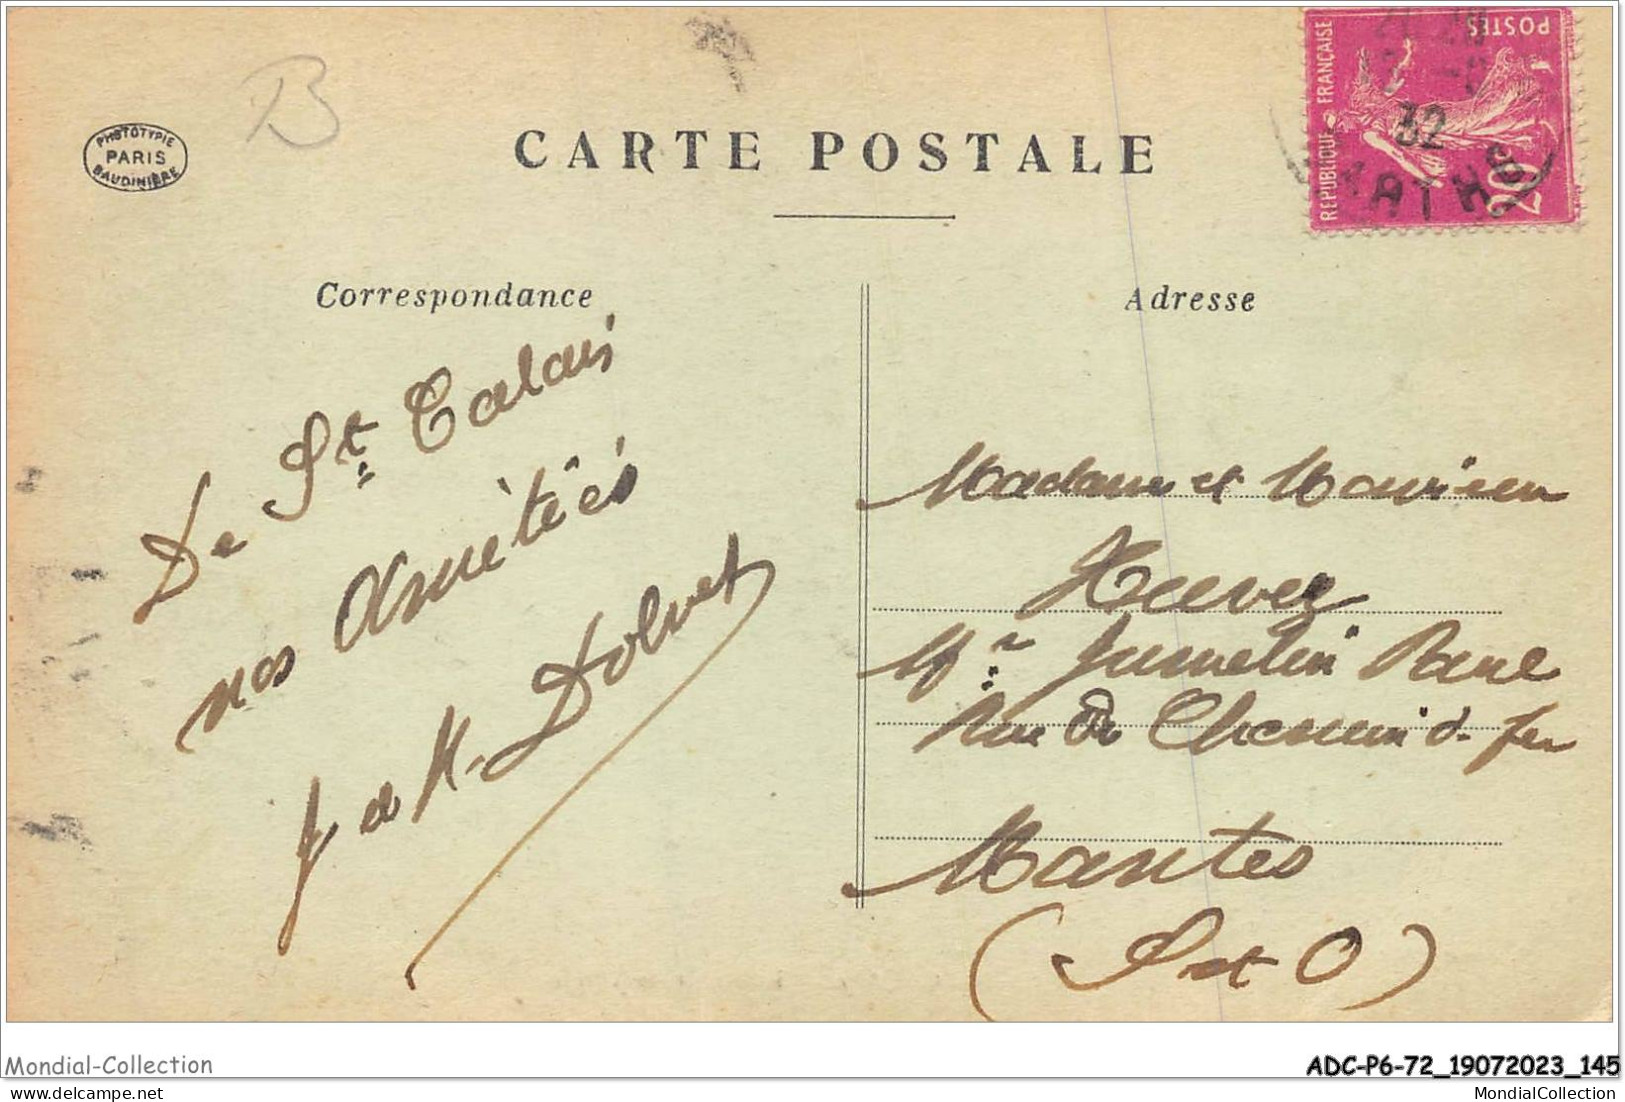 PHOTOTYPIE
PARIS
BAUDINIÈRE
B
CARTE POSTALE
REPUBLIQUE FRANÇAISE
POSTES
20c
32
Correspondance
Adresse
De St Calais
nos Amitiés
J et M. Dolvet
Madame et Monsieur
Mr Jumelin Paul
Rue du Chemin d. fer
Mantes
(S et O)
Mondial-Collection
ADC-P6-72_19072023_145
MondialCollection